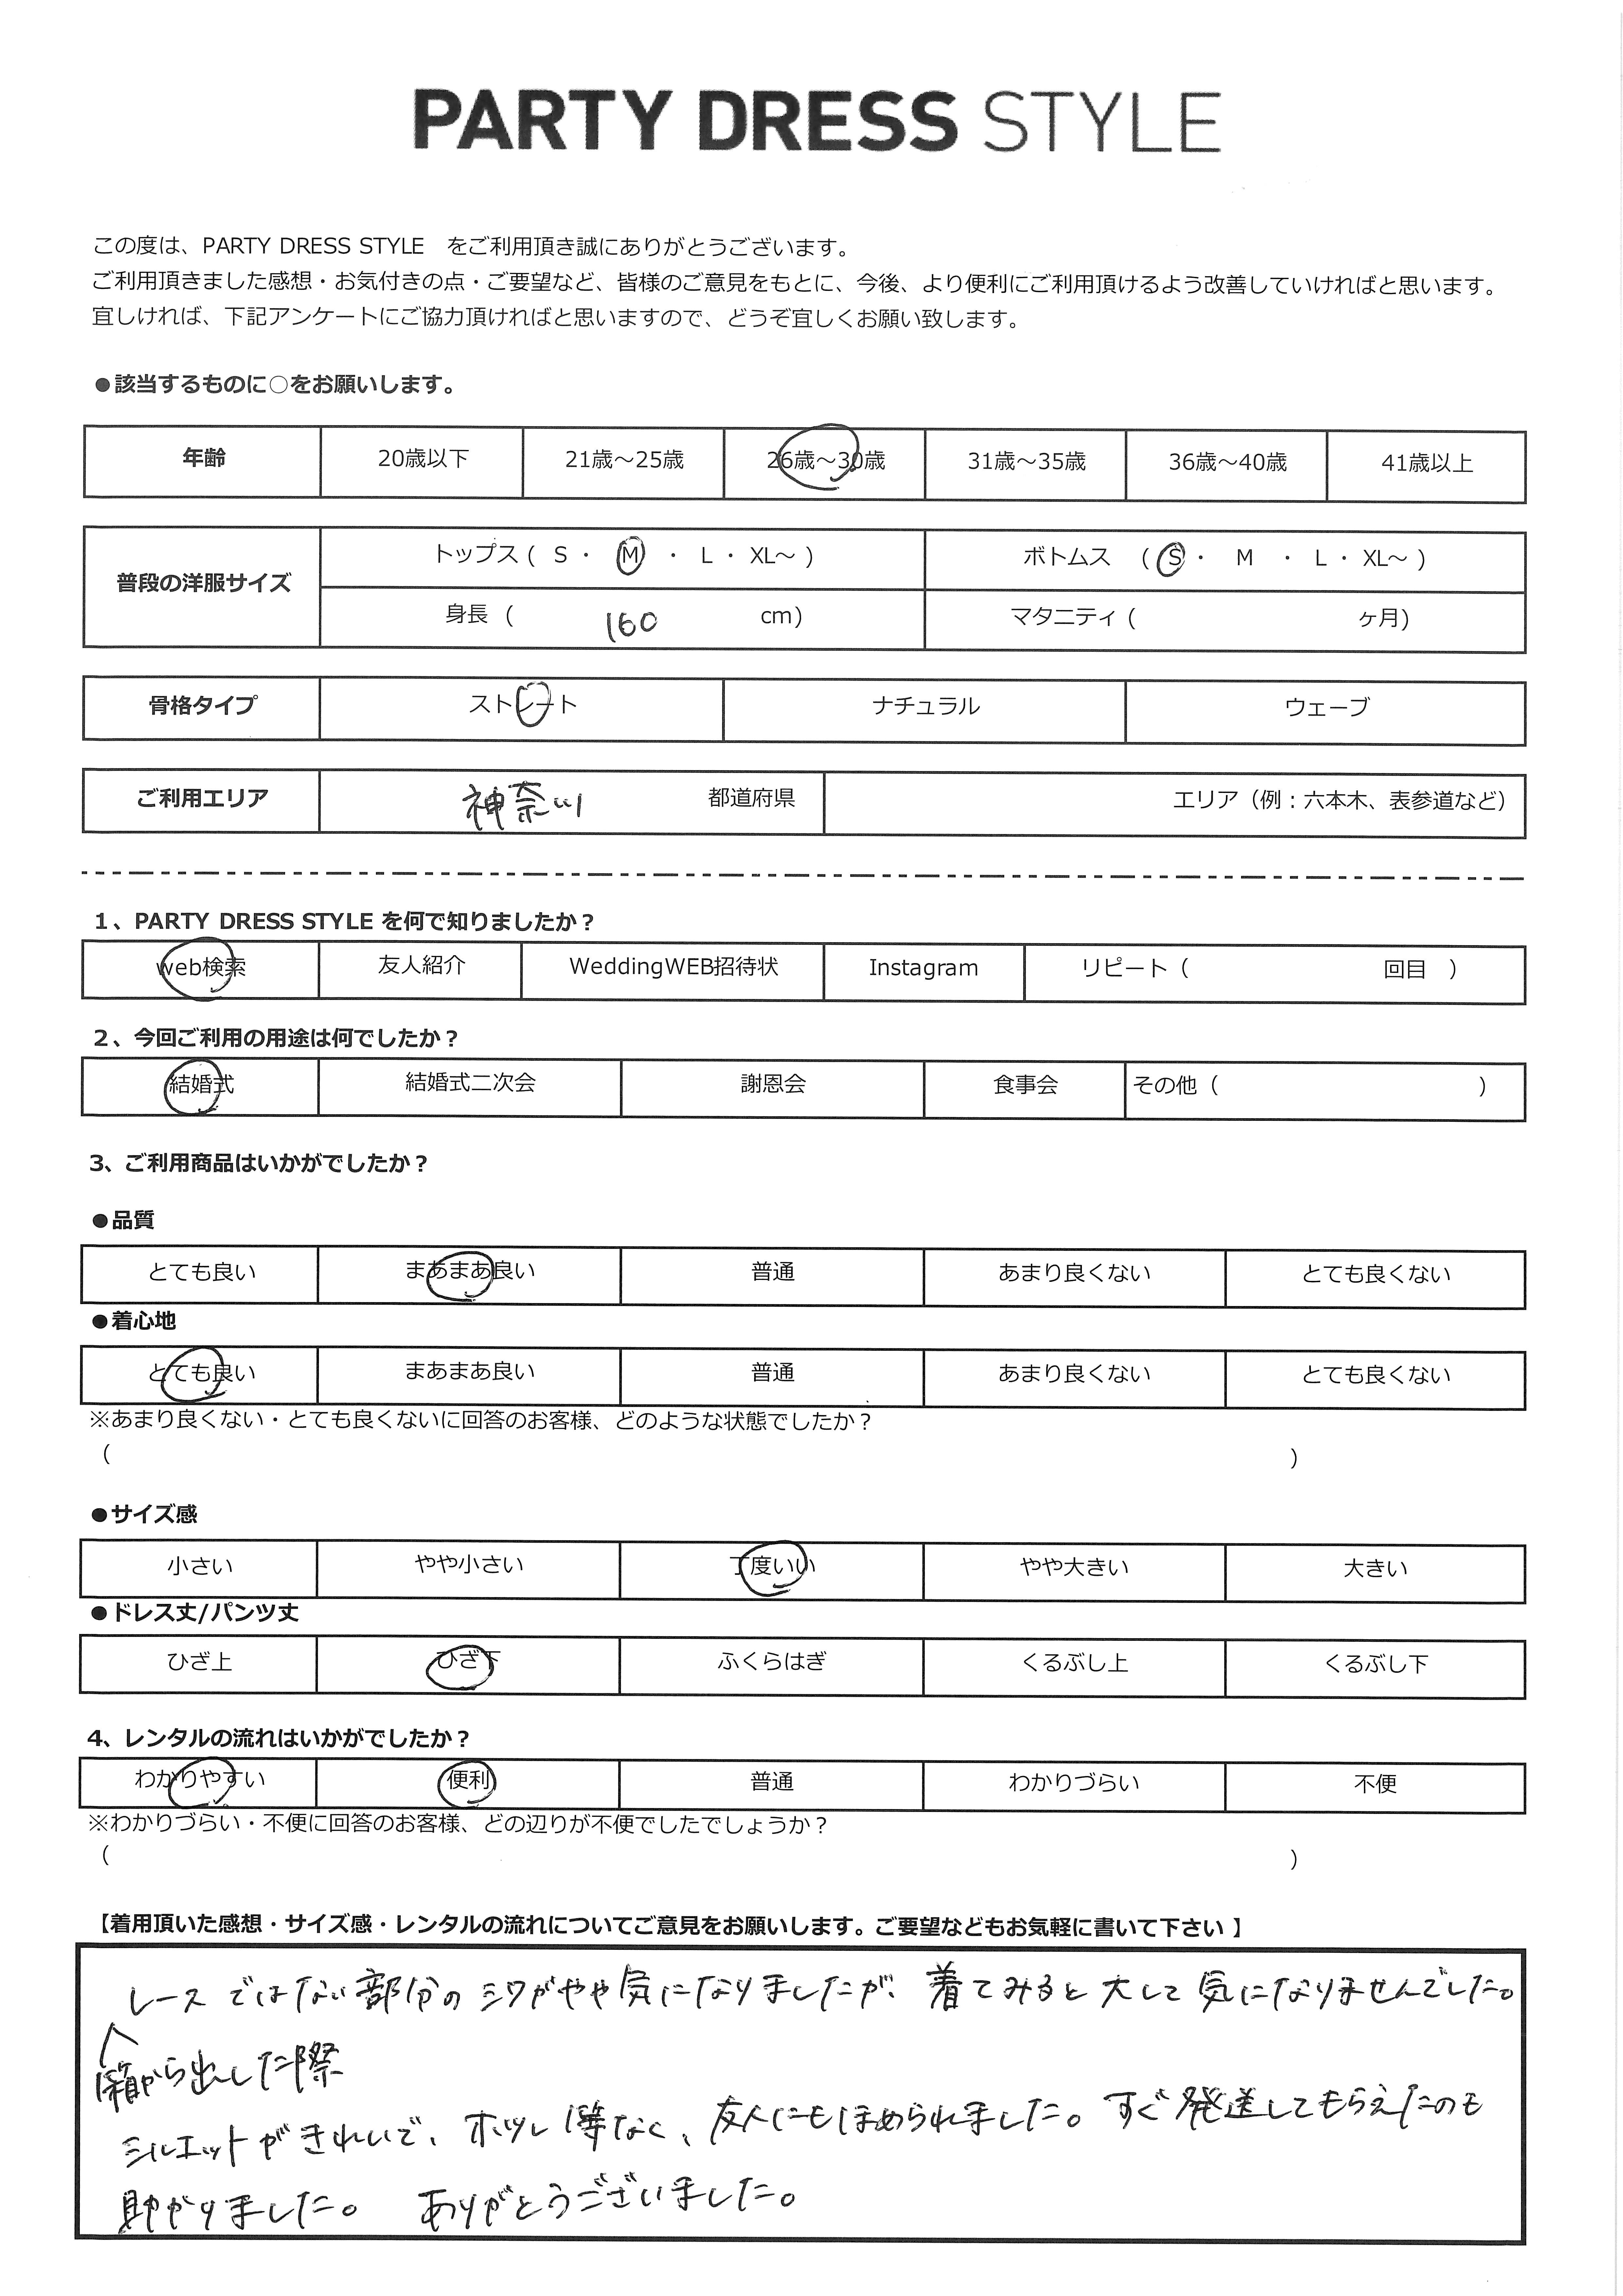 PARTY DRESS STYLE
この度は、PARTY DRESS STYLE　をご利用頂き誠にありがとうございます。
ご利用頂きました感想・お気付きの点・ご要望など、皆様のご意見をもとに、今後、より便利にご利用頂けるよう改善していければと思います。
宜しければ、下記アンケートにご協力頂ければと思いますので、どうぞ宜しくお願い致します。
●該当するものに○をお願いします。
年齢 20歳以下 21歳～25歳 26歳～30歳 31歳～35歳 36歳～40歳 41歳以上
普段の洋服サイズ トップス ( S ・ M ・ L ・ XL～ ) ボトムス ( S ・ M ・ L ・ XL～ )
身長 ( 160 cm) マタニティ ( ヶ月)
骨格タイプ ストレート ナチュラル ウェーブ
ご利用エリア 神奈川 都道府県 エリア（例：六本木、表参道など）
1、PARTY DRESS STYLE を何で知りましたか？
web検索 友人紹介 WeddingWEB招待状 Instagram リピート（ 回目 ）
2、今回ご利用の用途は何でしたか？
結婚式 結婚式二次会 謝恩会 食事会 その他（ ）
3、ご利用商品はいかがでしたか？
●品質
とても良い まあまあ良い 普通 あまり良くない とても良くない
●着心地
とても良い まあまあ良い 普通 あまり良くない とても良くない
※あまり良くない・とても良くないに回答のお客様、どのような状態でしたか？
（ ）
●サイズ感
小さい やや小さい 丁度いい やや大きい 大きい
●ドレス丈/パンツ丈
ひざ上 ひざ下 ふくらはぎ くるぶし上 くるぶし下
4、レンタルの流れはいかがでしたか？
わかりやすい 便利 普通 わかりづらい 不便
※わかりづらい・不便に回答のお客様、どの辺りが不便でしたでしょうか？
（ ）
【着用頂いた感想・サイズ感・レンタルの流れについてご意見をお願いします。ご要望などもお気軽に書いて下さい 】
レースではない部分のシワがやや気になりましたが、着てみると大して気になりませんでした。
箱から出した際
シルエットがきれいで、ホツレ等なく、友人にもほめられました。すぐ発送してもらえたのも
助かりました。　ありがとうございました。